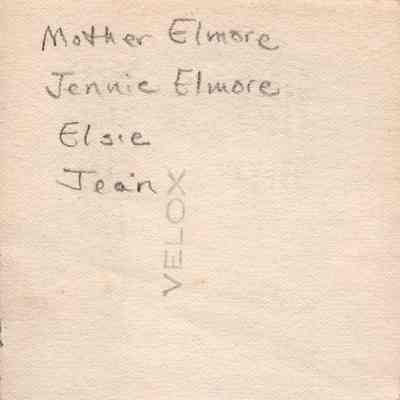 Mother Elmore
Jennie Elmore
Elsie
Jean
VELOX